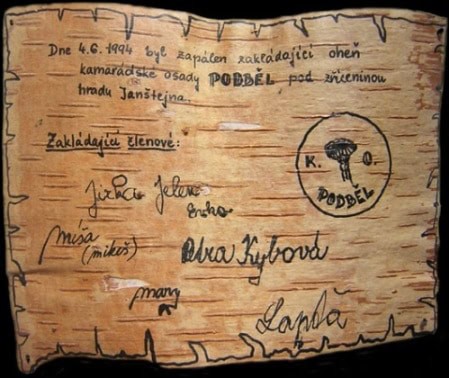 Dne 4.6.1994 byl zapálen zakládající oheň
kamarádské osady PODBĚL, pod zříceninou
hradu Janštejna.
Zakládající členové:
K. O.
PODBĚL
Jirka Jelen
míša
(mikeš)
Petra Kybová
mary